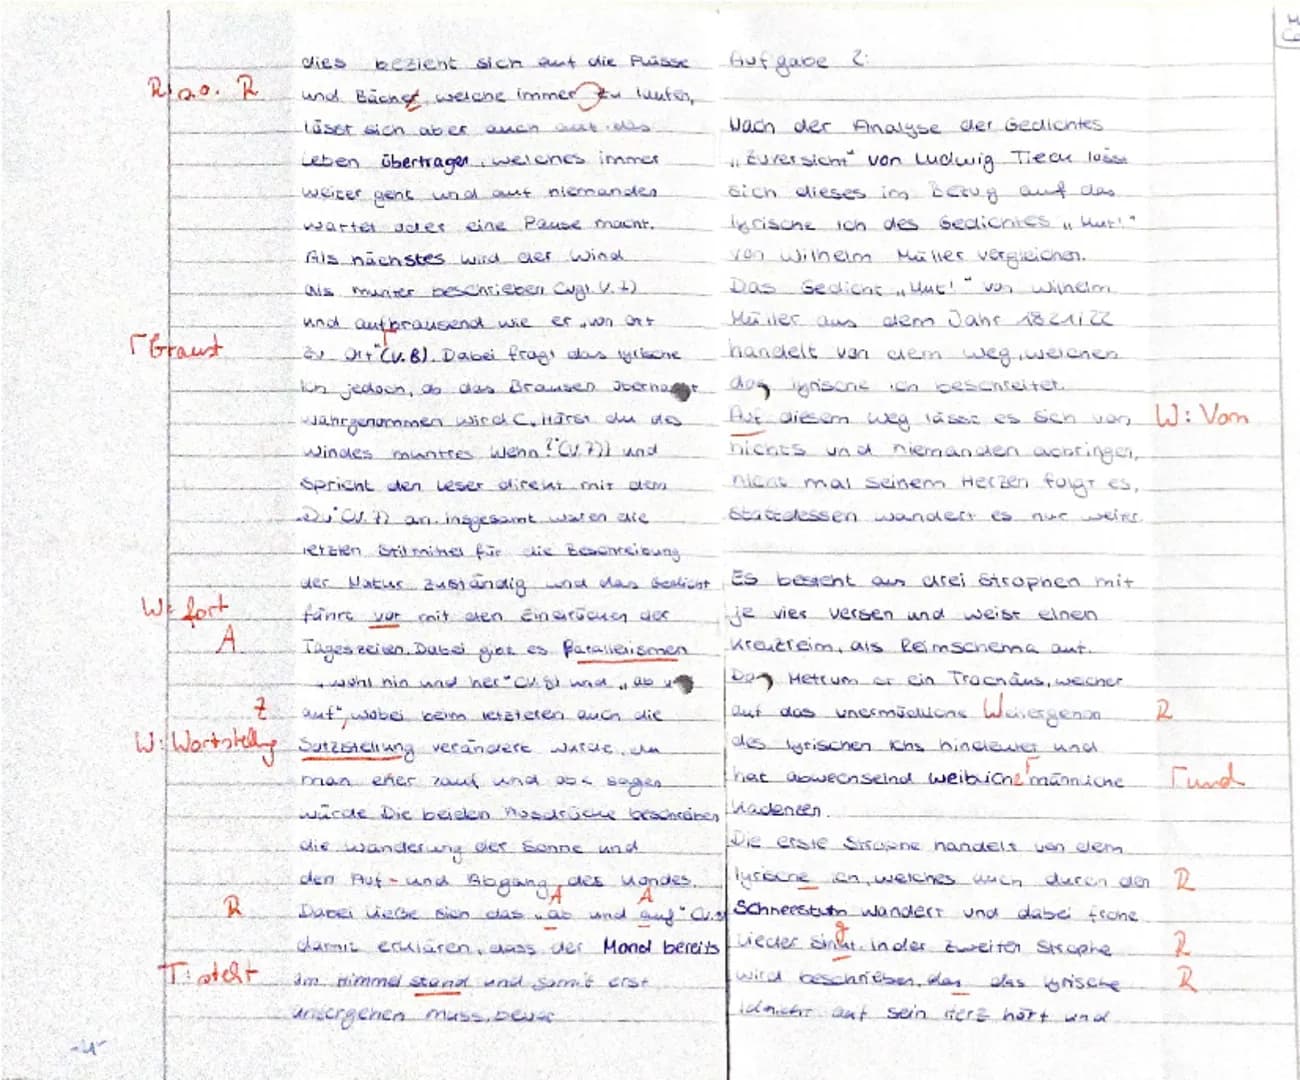 dies bezieht sich auf die Flüsse
R a.o. R
und Bäche, welche immer zu laufen,
lässt sich aber auch auf das
Leben übertragen, welches immer
weiter geht und auf niemanden
wartet oder eine Pause macht.
Als nächstes wird der Wind
als munter beschrieben (vgl. V. 7)
und aufbrausend wie er „von Ort
Γ Braust
zu Ort" (V. 8). Dabei fragt das lyrische
Ich jedoch, ob das Brausen überhaupt
wahrgenommen wird (, Hörst du des
Windes muntres Wehn?" (V. 7)) und
spricht den Leser direkt mit dem
„Du" (V. 7) an. insgesamt waren die
letzten Stilmittel für die Beschreibung
der Natur zuständig und das Gedicht
W: fort
führt vor mit den Eindrücken der
A
Tageszeiten. Dabei gibt es Parallelismen
„wohl hin und her" (V. 8) und „ab
Z
auf", wobei beim letzteren auch die
W: Wortstellung
Satzstellung verändert wurde, da
man eher auf und ab sagen
würde Die beiden Ausdrücke beschreiben
die Wanderung der Sonne und
den Auf- und Abgang des Mondes.
R A A
Dabei ließe sich das „ab und auf" (V. 9)
damit erklären, dass der Mond bereits
T: steht
am Himmel stand und somit erst
untergehen muss, bevor
-4-
Aufgabe 2:
Nach der Analyse der Gedichtes
„Zuversicht" von Ludwig Tieck lässt
sich dieses im Bezug auf das
lyrische Ich des Gedichtes „Mut!"
von Wilhelm Müller vergleichen.
Das Gedicht „Mut!" von Wilhelm
Müller aus dem Jahr 1821/22
handelt von dem Weg, welchen
das lyrische ich beschreitet.
Auf diesem Weg lässt es sich von W: Von
nichts und niemanden abbringen,
nicht mal seinem Herzen folgt es,
stattdessen wandert es nur weiter.
Es besteht aus drei Strophen mit
je vier Versen und weist einen
Kreuzreim, als Reimschema auf.
Das Metrum ist ein Trochäus, welcher
auf das unermüdliche Weitergehen R
des lyrischen Ichs hindeutet und
hat abwechselnd weibliche männliche Γ und
Kadenzen.
Die erste Strophe handelt von dem
lyrische ich, welches auch durch den R
Schneesturm wandert und dabei frohe
g
Lieder sinkt. In der zweiten Strophe R
wird beschrieben, das das lyrische R
Ich nicht auf sein Herz hört und